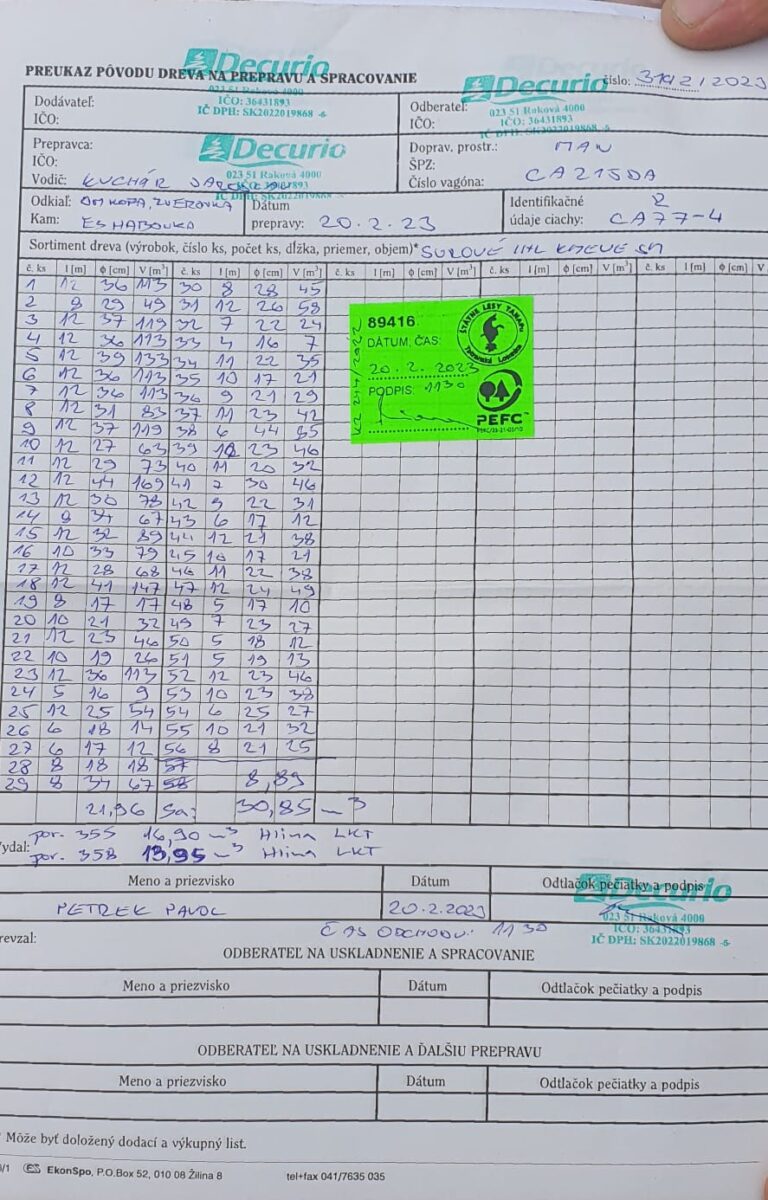 Decurio
PREUKAZ PÔVODU DREVA NA PREPRAVU A SPRACOVANIE
Decurio číslo: 2023
023 51 Raková 4000
IČO: 36431893
IČ DPH: SK2022019868 -6-
Dodávateľ:
IČO:
Odberateľ:
IČO:
023 51 Raková 4000
IČO: 36431893
IČ DPH: SK2022019868 -6-
Prepravca:
IČO:
Vodič: KUCHÁR
Decurio
023 51 Raková 4000
IČO: 36431893
IČ DPH: SK2022019868 -6-
Doprav. prostr.: MAN
ŠPZ:
Číslo vagóna: CA215DA
Odkiaľ: ZVEROVKA
Kam: ES HABOVKA
Dátum
prepravy: 20.2.23
Identifikačné 2
údaje ciachy: CA77-4
Sortiment dreva (výrobok, číslo ks, počet ks, dĺžka, priemer, objem)* SUROVÉ IHL KMEVE SM
č. ks l [m] ϕ [cm] V [m³] č. ks l [m] ϕ [cm] V [m³] č. ks l [m] ϕ [cm] V [m³] č. ks l [m] ϕ [cm] V [m³] č. ks l [m] ϕ [cm] V
1 12 36 113 30 8 28 45
2 9 29 49 31 12 26 58
3 12 37 119 32 7 22 24
4 12 36 113 33 4 16 7
5 12 39 133 34 11 22 35
6 12 36 113 35 10 17 21
7 12 36 113 36 9 21 29
8 12 31 83 37 11 23 42
9 12 37 119 38 6 44 85
10 12 27 63 39 12 23 46
11 12 29 73 40 11 20 32
12 12 44 169 41 7 30 46
13 12 30 78 42 9 22 31
14 8 34 67 43 6 17 12
15 12 32 89 44 12 21 38
16 10 33 79 45 10 17 21
17 12 28 68 46 11 22 38
18 12 41 147 47 12 24 49
19 8 17 17 48 5 17 10
20 10 21 32 49 7 23 27
21 12 23 46 50 5 18 12
22 10 19 26 51 5 19 13
23 12 36 113 52 12 23 46
24 5 16 9 53 10 23 38
25 12 25 54 54 6 25 27
26 6 18 14 55 10 21 32
27 6 17 12 56 8 21 25
28 8 18 18 57
29 8 34 67 58 8,89
21,96 Sa: 30,85 m3
89416
DÁTUM, ČAS:
20. 2. 2023
PODPIS: 1130
ŠTÁTNE LESY TANAPu
Tatranská Lomnica
PEFC™
por. 355 16,90 m3 Hlina LKT
ydal:
por. 358 13,95 m3 Hlina LKT
Meno a priezvisko Dátum Odtlačok pečiatky a podpis
PETREK PAVOL 20.2.2023
Decurio
023 51 Raková 4000
IČO: 36431893
IČ DPH: SK2022019868 -6-
revzal:
ČAS ODCHODU: 11 30
ODBERATEĽ NA USKLADNENIE A SPRACOVANIE
Meno a priezvisko Dátum Odtlačok pečiatky a podpis
ODBERATEĽ NA USKLADNENIE A ĎALŠIU PREPRAVU
Meno a priezvisko Dátum Odtlačok pečiatky a podpis
* Môže byť doložený dodací a výkupný list.
/1 ES EkonSpo, P.O.Box 52, 010 08 Žilina 8 tel+fax 041/7635 035